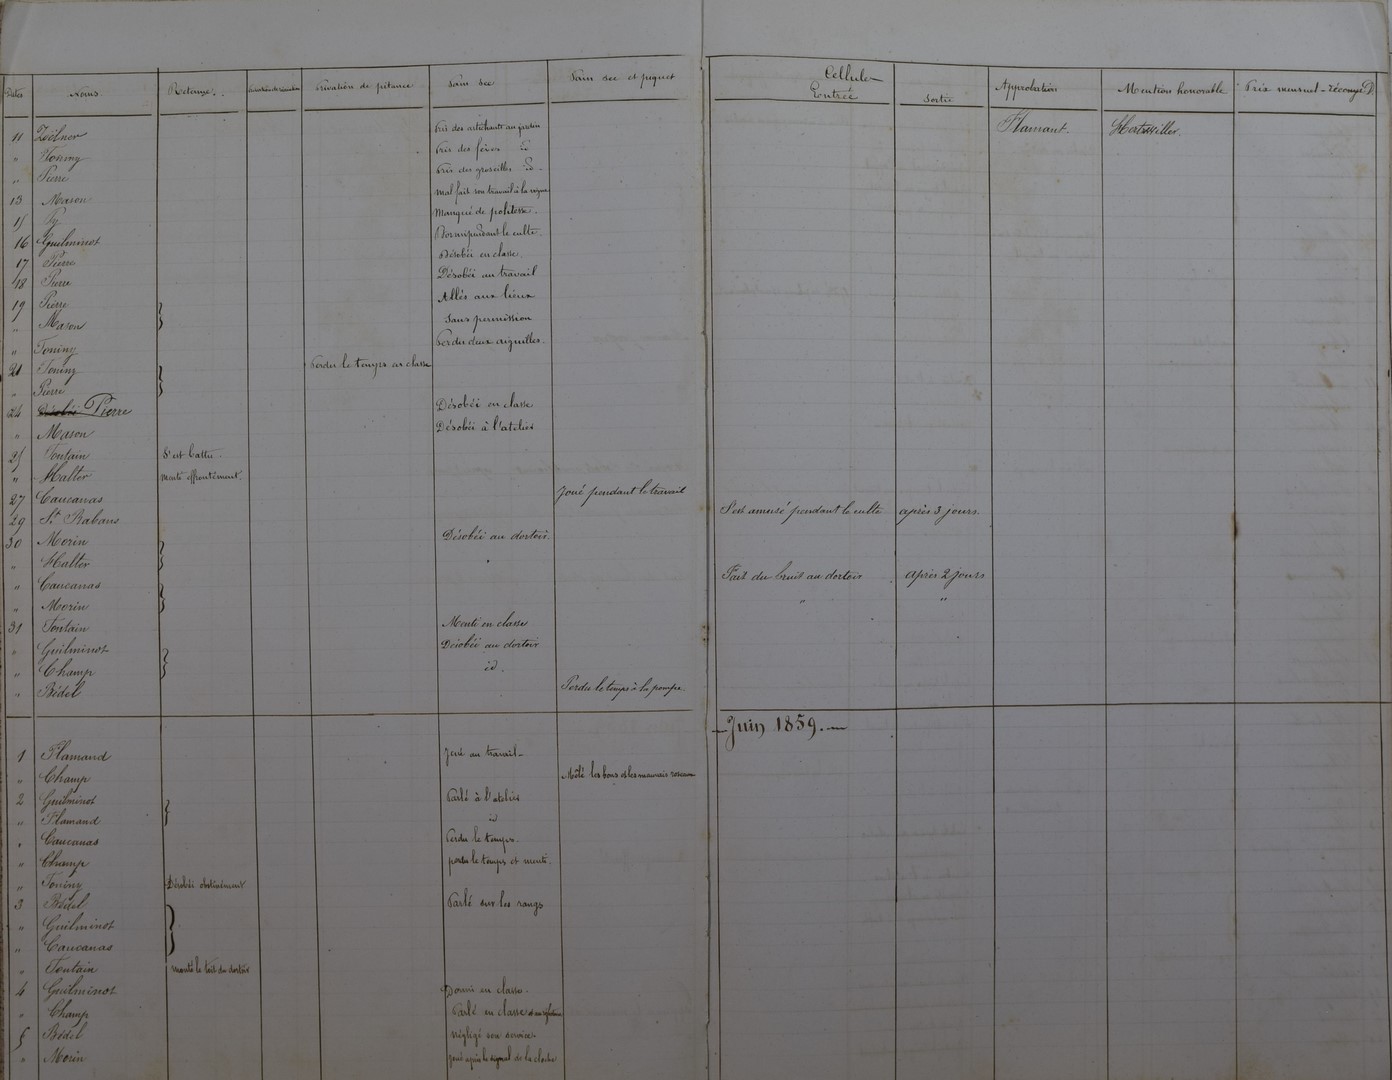 Dates Noms Retenue. Privation de pitance Pain sec Pain sec et piquet Cellule Entrée Sortie Approbation Mention honorable Prix mensuel - récomp.
11 Zeölner Pris des artichauts au jardin Flamant. Hertswiller.
" Toniny Pris des fèves id
" Pierre Pris des groseilles id -
13 Mason mal fait son travail à la vigne
15 Py Manqué de politesse.
16 Guilminot Dormi pendant le culte
17 Pierre Désobéi en classe.
18 Pierre Désobéi au travail
19 Pierre Allés aux lieux
" Mason sans permission
" Toniny Perdu deux aiguilles.
21 Toniny Perdu le temps en classe
" Pierre
24 Désobéi Pierre Désobéi en classe
" Mason Désobéi à l'atelier
25 Fontain S'est battu.
" Halter menti effrontément.
27 Caucanas Joué pendant le travail
29 St Rabans S'est amusé pendant le culte après 3 jours.
30 Morin Désobéi au dortoir.
" Halter "
" Caucanas Fait du bruit au dortoir après 2 jours
" Morin " "
31 Fontain Menti en classe
" Guilminot Désobéi au dortoir
" Champ id.
" Bédel Perdu le temps à la pompe
Juin 1859.
1 Flamand Joué au travail -
" Champ Mêlé les bons et les mauvais roseaux
2 Guilminot Parlé à l'atelier
" Flamand id
" Caucanas Perdu le temps.
" Champ perdu le temps et menti.
" Toniny Désobéi obstinément
3 Bédel Parlé sur les rangs
" Guilminot
" Caucanas
" Fontain monté le toit du dortoir
4 Guilminot Dormi en classe.
" Champ Parlé en classe et au réfectoire
5 Bédel Négligé son service
" Morin Joué après le signal de la cloche